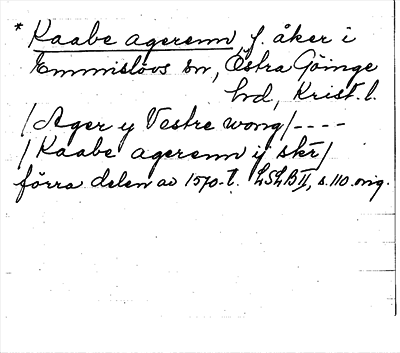 * Kaabe agerenn f. åker i
Emmislövs sn, Östra Göinge
hd, Krist. l.
/Ager y Vestre wong/ ----
/Kaabe agerenn ij skr/
förra delen av 1570-t. LSLB II, s. 110 orig.